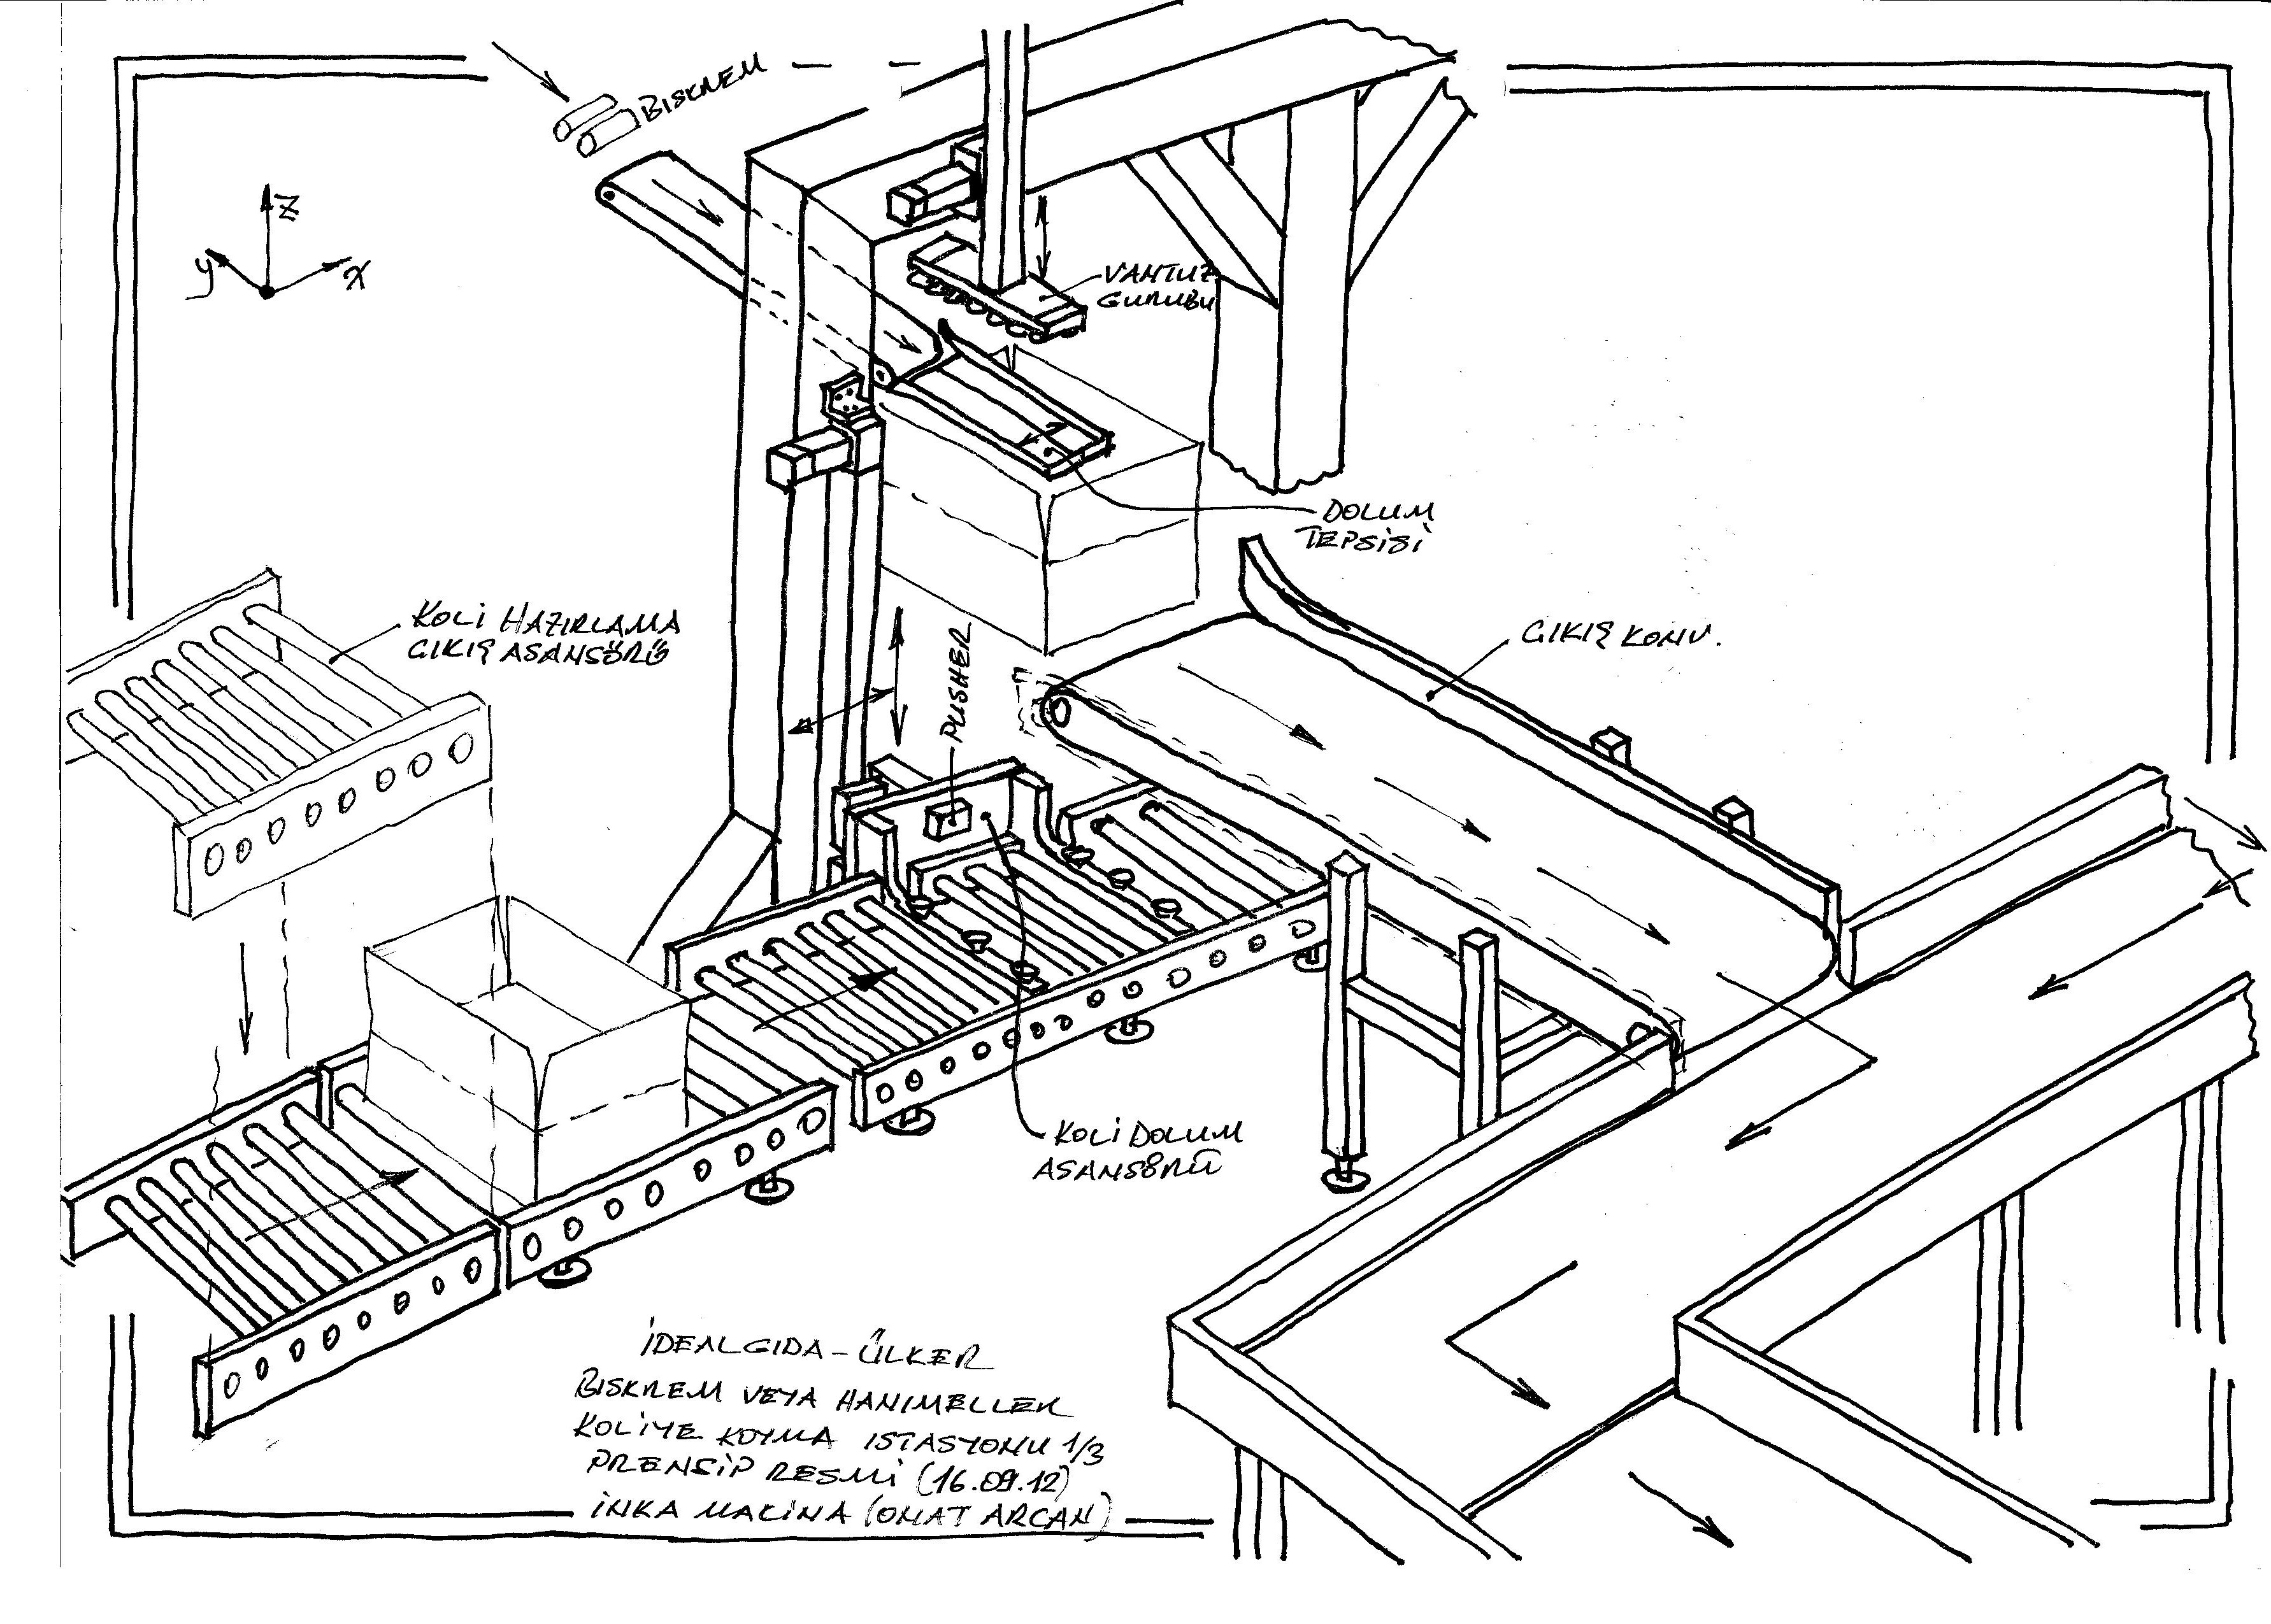 BISKREM
Z
y
X
VANTUZ
GURUBU
DOLUM
TEPSİSİ
KOLİ HAZIRLAMA
CIKIŞ ASANSÖRÜ
PUSHER
CIKIŞ KONV.
KOLİ DOLUM
ASANSÖRÜ
İDEAL GIDA - ÜLKER
BISKREM VEYA HANIMELLER
KOLİYE KOYMA ISTASYONU 1/3
PRENSİP RESMİ (16.09.12)
İNKA MAKİNA (ONAT ARCAN)